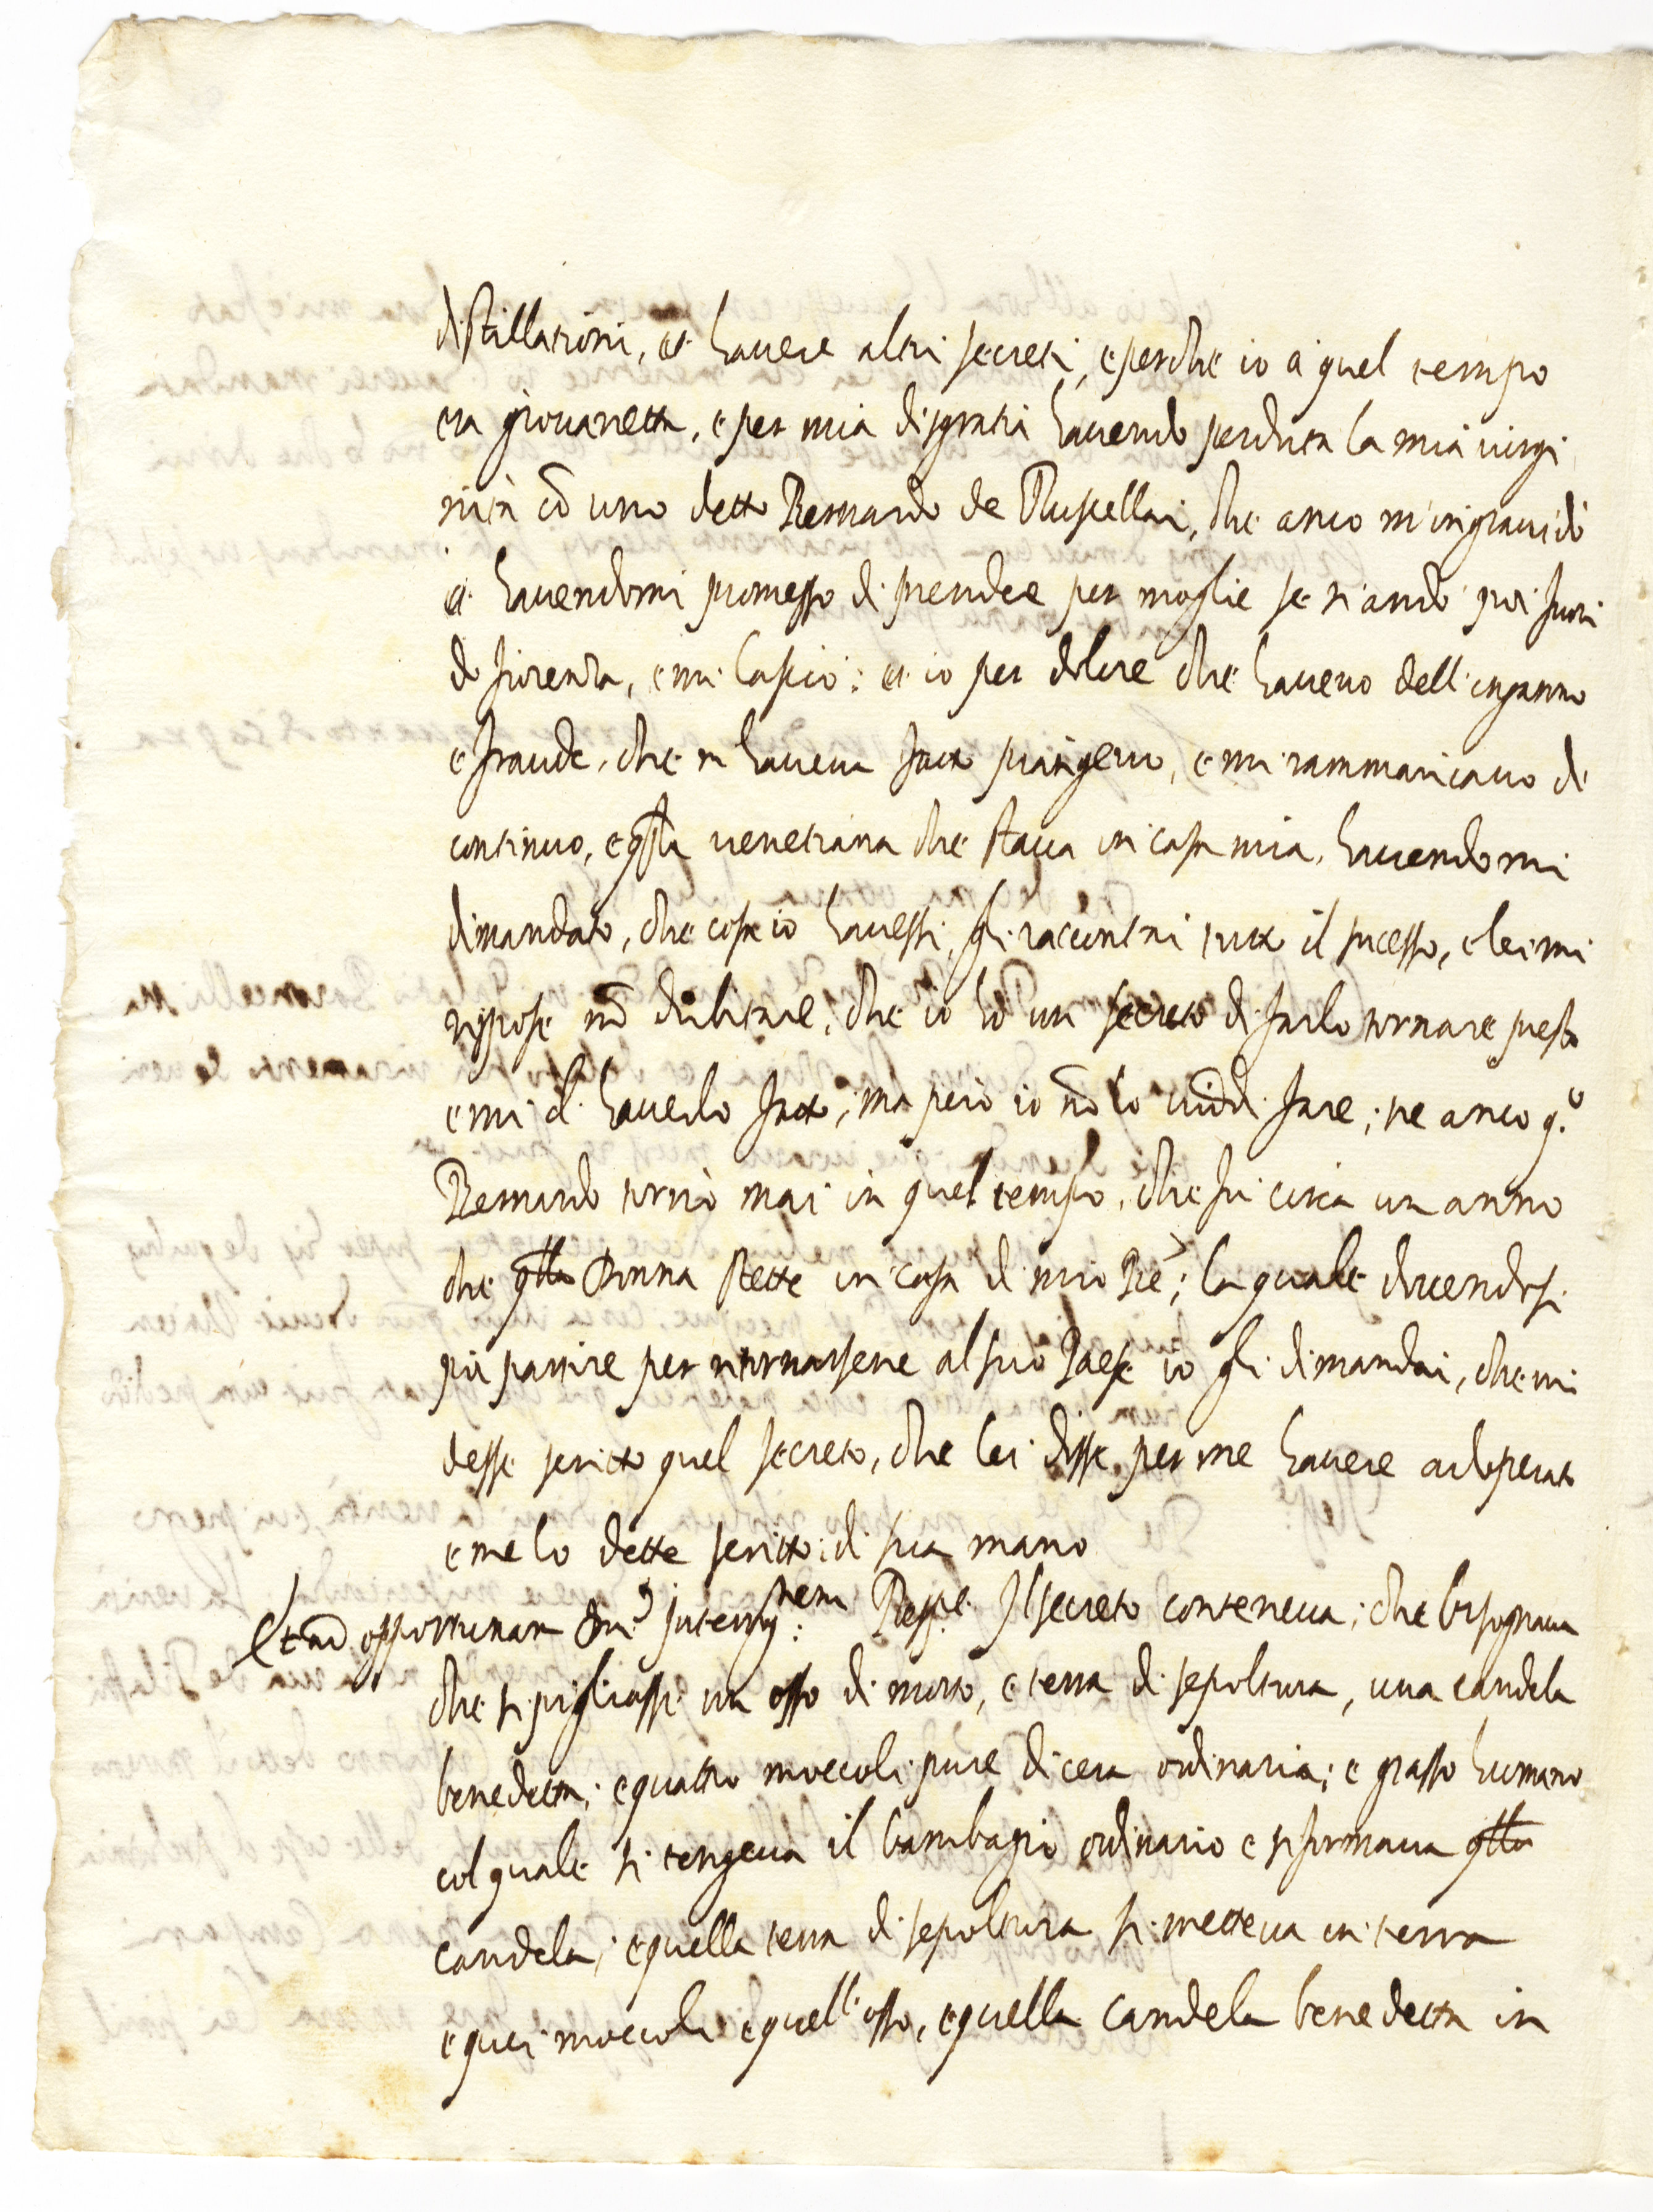 distillationi, et havere altri secreti, e perche io a quel tempo
era giovanetta, e per mia disgratia havendo perduta la mia virgi
nità cō uno detto Bernardo de Ruscellai, che anco m'ingravidò
et havendomi promesso di prendere per moglie se n'andò poi fuori
di fiorenza, e mi lasciò: et io per dolore che havevo dell'inganno
e fraude, che m'haveva fatto piangevo, e mi rammaricavo di
continuo, e qsta venetiana che stava in casa mia, havendomi
dimandato, che cosa io havessi, gli raccontai tutto il sucesso, e lei mi
rispose nō dubitare, che io hò un secreto di farlo tornare presto
e mi dᵉ haverlo fatto, ma però io nō lo viddi fare; ne anco q.º
Bernardo tornò mai in quel tempo, che fù circa un anno
che qlla Donna stette in casa di mio Pre; la quale dovendosi
poi partire per ritornarsene al suo Paese io gli dimandai, che mi
desse scritto quel secreto, che lei disse per me havere adoperato
e me lo dette scritto di sua mano
Et ad opportunam Dni Interrog.nem Resp.e Il secreto conteneva; che bisognava
che si pigliasse un osso di morto, e terra di sepoltura, una candela
benedetta; e quattro moccoli pure di cera ordinaria; e grasso humano
col quale si tengeva il bambagio ordinario e si formava qlla
candela; e quella terra di sepoltura si metteva in terra
e quei moccoli e quell'osso, e quella candela benedetta in